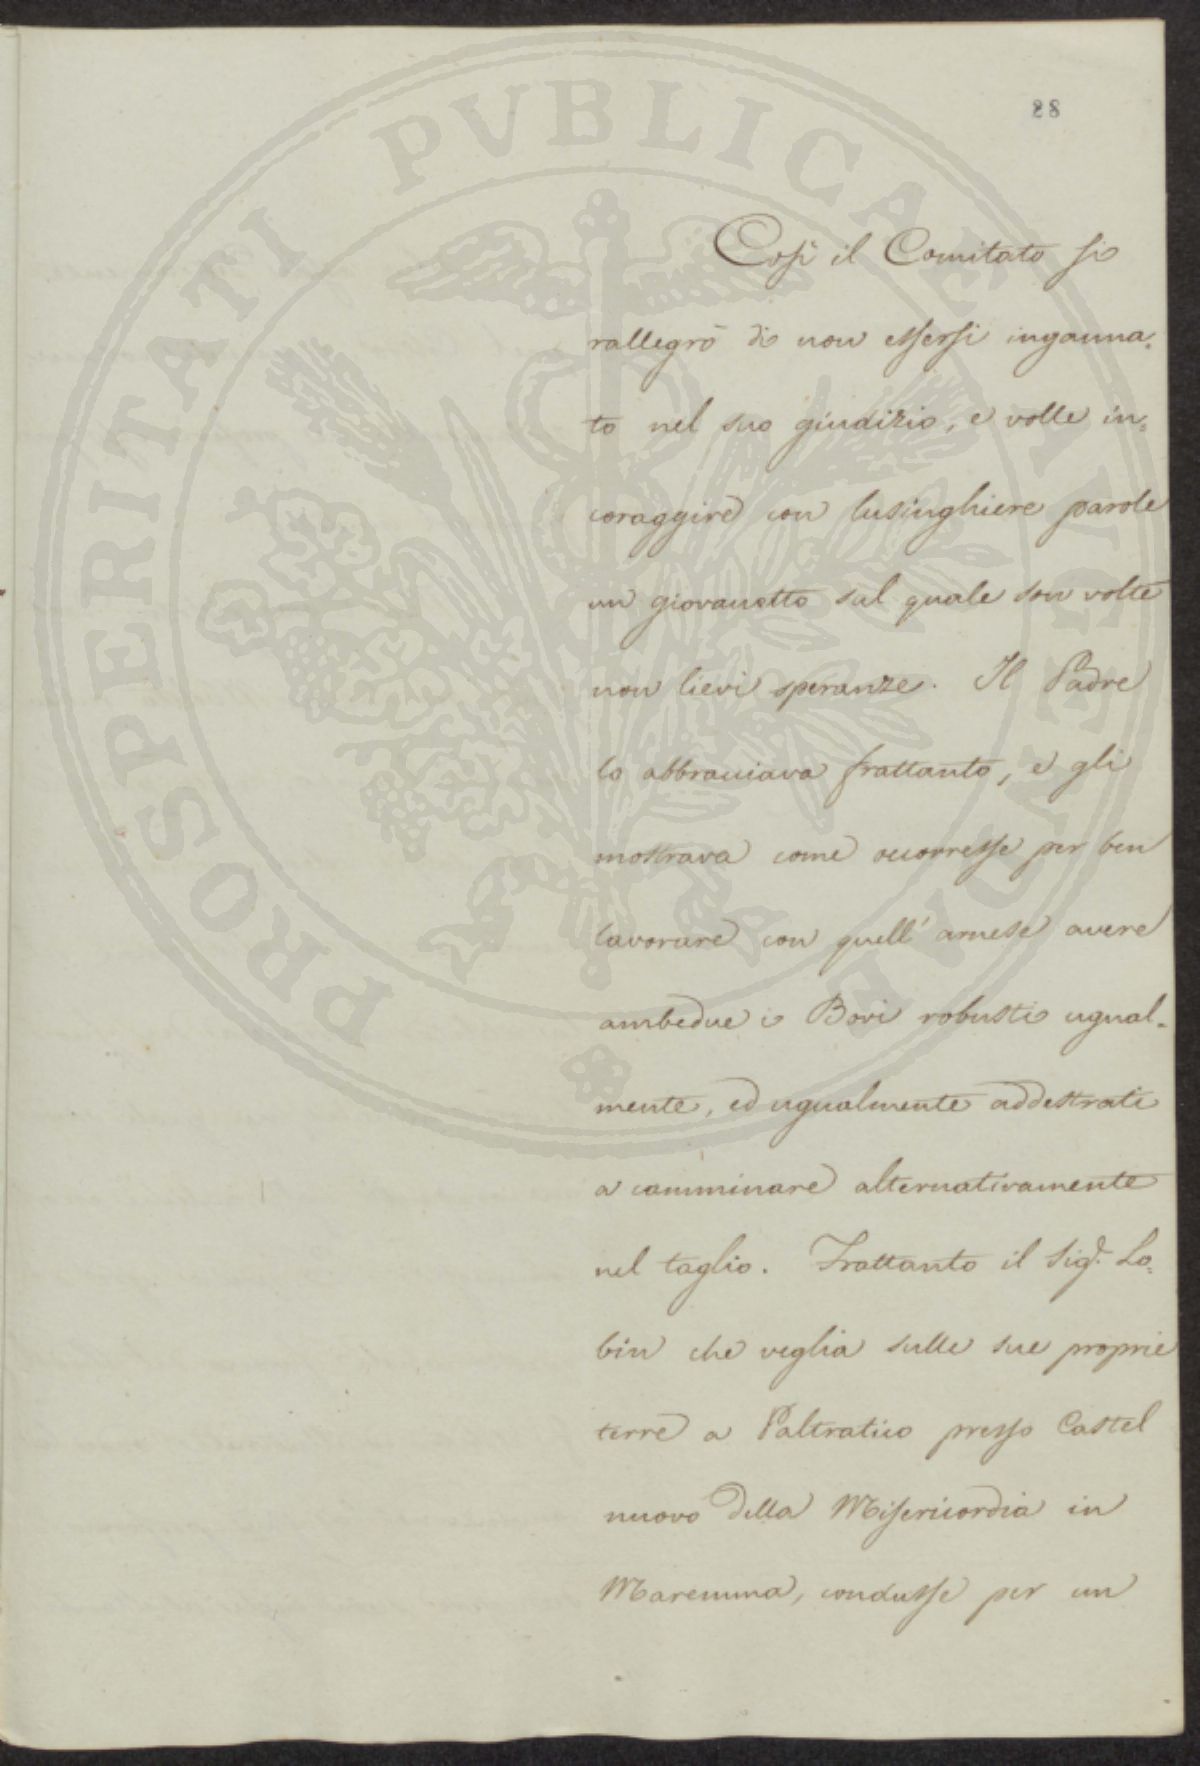 PROSPERITATI PVBLICAE AVGENDAE
88
Così il Comitato si
rallegrò di non essersi inganna=
to nel suo giudizio, e volle in=
coraggire con lusinghiere parole
un giovanotto sul quale son volte
non lievi speranze. Il Padre
lo abbracciava frattanto, e gli
mostrava come occorresse per ben
lavorare con quell' arnese avere
ambedue i Bovi robusti ugual=
mente, ed ugualmente addestrati
a camminare alternativamente
nel taglio. Frattanto il Sigr. Lo=
bin che veglia sulle sue proprie
terre a Paltratico presso Castel
nuovo della Misericordia in
Maremma, condusse per un